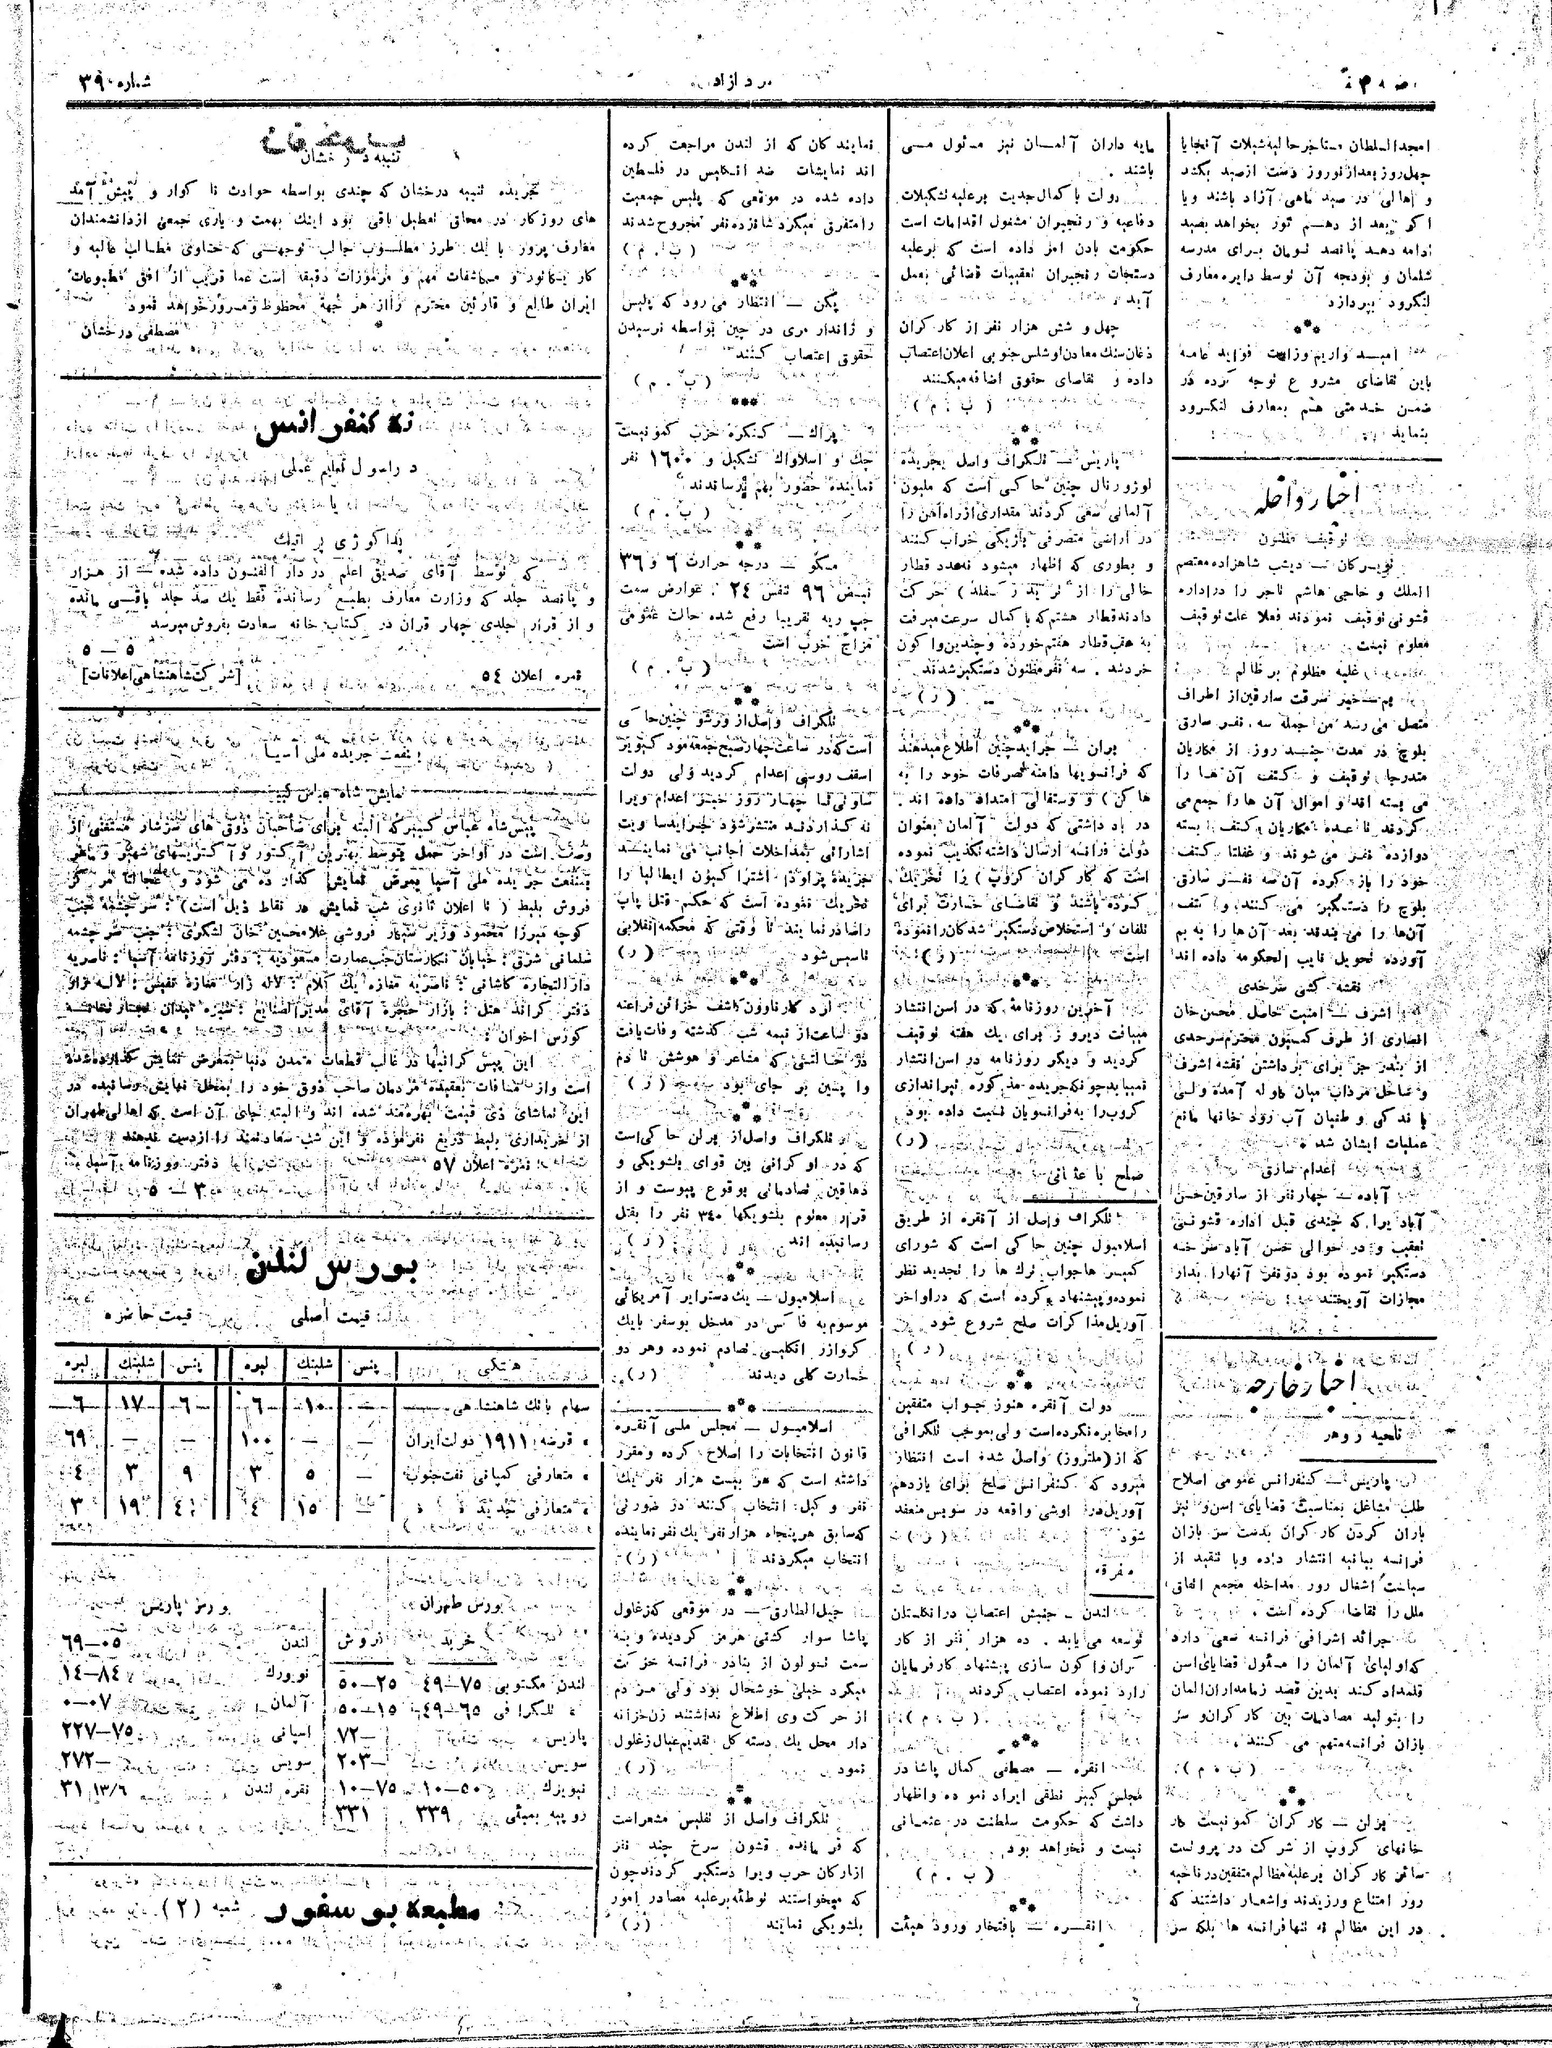 شماره ۳۹
مرد آزاد
امجدالسلطان مستاجر حالیه شیلات آنجا یا
چهل روز بعد از نوروز دست از صید بکشد
و اهالی در صید ماهی آزاد باشند و یا
اگر بعد از دهم ثور بخواهد بصید
ادامه دهد پانصد تومان برای مدرسه
شلمان و بودجه آن توسط دایره معارف
لنگرود بپردازد
امیدواریم وزارت فواید عامه
باین تقاضای مشروع توجه کرده در
ضمن خدمتی هم بمعارف لنگرود
بنماید
اخبار داخله
توقیف مظنون
تویسرکان — دیشب شاهزاده معتصم
الملک و حاجی هاشم تاجر را در اداره
قشونی توقیف نمودند فعلا علت توقیف
معلوم نیست
غلبه مظلوم بر ظالم
بم — خبر سرقت سارقین از اطراف
متصل می رسد من جمله سه نفر سارق
بلوچ در مدت چند روز از مکاریان
متدرجا توقیف و کتف آن ها را
می بسته اند و اموال آن ها را جمع می
کردند تا عده مکاریان کتف بسته
دوازده نفر می شوند و غفلتا کتف
خود را باز کرده آن سه نفر سارق
بلوچ را دستگیر می کنند و کتف
آن ها را می بندند بعد آن ها را به بم
آورده تحویل نایب الحکومه داده اند
نقشه کشی سرحدی
اشرف — امنیت حاصل محسن خان
انصاری از طرف کمسیون محترم سرحدی
از بندر جز برای برداشتن نقشه اشرف
و ساحل مرداب میان کاوله آمده ولی
بارندگی و طغیان آب رود خانها مانع
عملیات ایشان شده
اعدام سارق
آباده — چهار نفر از سارقین حسن
آباد را که چندی قبل اداره قشونی
تعقیب و در حوالی حسن آباد سرحد
دستگیر نموده بود دو نفر آنها را بدار
مجازات آویختند
اخبار خارجه
ناحیه روهر
پاریس — کنفرانس عمومی اصلاح
طلب مشاغل بمناسبت قضایای اسن و تیر
باران کردن کارگران بدست سربازان
فرانسه بیانیه انتشار داده و با تنقید از
سیاست اشغال رور مداخله مجمع اتفاق
ملل را تقاضا کرده است .
جرائد اشرافی فرانسه سعی دارد
که اولیای آلمان را مسئول قضایای اسن
قلمداد کند بدین قصد زمامداران المان
را بتولید مصادمات بین کارگران و سر
بازان فرانسه متهم می کنند
(ب . م)
برلن — کارگران کمونیست کار
خانهای کروپ از شرکت در پروتست
سائر کارگران برعلیه مظالم متفقین در ناحیه
رور امتناع ورزیدند و اشعار داشتند که
در این مظالم نه تنها فرانسه ها بلکه سر
مایه داران آلمان نیز مسئول می
باشند .
دولت با کمال جدیت برعلیه تشکیلات
دفاعیه و رنجبران مشغول اقدامات است
حکومت بادن امر داده است که برعلیه
دستجات رنجبران تعقیبات قضائی بعمل
آید
چهل و شش هزار نفر از کارگران
ذغال سنگ معادن اوشلس جنوبی اعلان اعتصاب
داده و تقاضای حقوق اضافه میکنند
(ب . م)
پاریس — تلگراف واصل بجریده
لوژورنال چنین حاکی است که ملیون
آلمانی سعی کردند مقداری از راه آهن را
در اراضی متصرفی بازیکی خراب کنند
و بطوری که اظهار میشود نه عدد قطار
خالی را از حرکت
دادند قطار هشتم که با کمال سرعت میرفت
به هفت قطار هفتم خورده و چندین واگون
خرد شد . سه نفر مظنون دستگیر شدند
(ر)
برلن — جراید چنین اطلاع میدهند
که فرانسویها دامنه تصرفات خود را به
هاگن) و وستفالی امتداد داده اند .
در یاد داشتی که دولت آلمان بعنوان
دولت فرانسه ارسال داشته تکذیب نموده
است که کارگران کروپ) را تحریک
کرده باشند و تقاضای خسارت برای
تلفات و استخلاص دستگیر شدگان را نموده
است (ر)
آخرین روزنامه که در اسن انتشار
مییافت دیروز برای یک هفته توقیف
گردید و دیگر روزنامه در اسن انتشار
نمییابد چونکه جریده مذکوره تیراندازی
کروپ را به فرانسویان نسبت داده بود
(ر)
صلح با عثمانی
تلگراف واصل از آنقره از طریق
اسلامبول چنین حاکی است که شورای
کمیسرها جواب ترک ها را تجدید نظر
نموده و پیشنهاد کرده است که در اواخر
آوریل مذاکرات صلح شروع شود
(ر)
دولت آنقره هنوز جواب متفقین
را مخابره نکرده است ولی بموجب تلگرافی
که از (ملتروز) واصل شده است انتظار
میرود که کنفرانس صلح برای یازدهم
آوریل در اوشی واقعه در سویس منعقد
شود (ر)
متفرقه
لندن - جنبش اعتصاب در انگلستان
توسعه می یابد . ده هزار نفر از کار
گران واگون سازی پیشنهاد کارفرمایان
را رد نموده اعتصاب کردند
(ب . م)
انقره — مصطفی کمال پاشا در
مجلس کبیر نطقی ایراد نموده و اظهار
داشت که حکومت سلطنت در عثمانی
نیست و نخواهد بود
(ب . م)
انقره — بافتخار ورود هیئت
نمایندگان که از لندن مراجعت کرده
اند نمایشات ضد انگلیس در فلسطین
داده شده در موقعی که پلیس جمعیت
را متفرق میکرد شانزده نفر مجروح شدند
(ب . م)
پکن — انتظار می رود که پلیس
و ژاندارمری در چین بواسطه نرسیدن
حقوق اعتصاب کنند
(ب . م)
پراگ — کنگره حزب کمونیست
چک و اسلاواک تشکیل و ۱۶۰۰ نفر
نماینده حضور بهم رساندند
(ب . م)
مسکو — درجه حرارت ۶ و ۳۶
نبض ۹۶ تنفس ۲۴ . عوارض سمت
چپ ریه تقریبا رفع شده حالت عمومی
مزاج خوب است
(ب . م)
تلگراف واصل از ورشو چنین حاکی
است که در ساعت چهار صبح جمعه مود کیویز
اسقف روسی اعدام گردید ولی دولت
ساوتی تا چهار روز خبر اعدام ویرا
نه گذاردند منتشر شود جراید ساویت
اشاراتی بمداخلات اجانب می نمایند
جریده پراودا اشتراکیون ایطالیا را
تحریک نموده است که حکم قتل پاپ
را صادر نمایند تا وقتی که محکمه انقلابی
تاسیس شود (ر)
لرد کارناوون کاشف خزائن فراعنه
دو ساعت از نیمه شب گذشته وفات یافت
در حالتی که مشاعر و هوشش تا دم
واپسین بر جای بود (ر)
تلگراف واصل از برلن حاکی است
که در اوکرانی بین قوای بلشویکی و
دهاقین تصادماتی بوقوع پیوست و از
قرار معلوم بلشویکها ۳۴۰ نفر را بقتل
رسانیده اند (ر)
اسلامبول — یک دسترایر آمریکائی
موسوم به در مدخل بوسفر با یک
کروازر انگلیسی تصادم نموده و هر دو
خسارت کلی دیدند (ر)
اسلامبول — مجلس ملی آنقره
قانون انتخابات را اصلاح کرده و مقرر
داشته است که هر بیست هزار نفر یک
نفر وکیل انتخاب کنند در صورتی
که سابق هر پنجاه هزار نفر یک نفر نماینده
انتخاب میکردند (ر)
جبل الطارق — در موقعی که زغلول
پاشا سوار کشتی هرمز گردیده و به
سمت تولون از بنادر فرانسه حرکت
میکرد خیلی خوشحال بود ولی مردم
از حرکت وی اطلاع نداشتند زن خزانه
دار محل یک دسته گل تقدیم عیال زغلول
نمود (ر)
تلگراف واصل از تفلیس مشعر است
که فرمانده قشون سرخ چند نفر
از ارکان حرب ویرا دستگیر کردند چون
که میخواستند توطئه برعلیه مصادر امور
بلشویکی نمایند (ر)
تنبیه درخشان
جریده تنبیه درخشان که چندی بواسطه حوادث ناگوار و پیش آمد
های روزگار در محاق تعطیل باقی بود اینک بهمت و یاری جمعی از دانشمندان
معارف پرور با یک طرز مطلوب جالب توجهی که حتاوی مطالب عالیه و
کاریکاتور و مکاشفات مهم و مرموزات دقیقه است عما قریب از افق مطبوعات
ایران طالع و قارئین محترم را از هر جهة محظوظ و مسرور خواهد نمود
مصطفی درخشان
نه کنفرانس
در اصول تعلیم عملی
پداگوژی پراتیک
که توسط آقای صدیق اعلم در دار الفنون داده شده — از هزار
و پانصد جلد که وزارت معارف بطبع رسانده فقط یک صد جلد باقی مانده
و از قرار جلدی چهار قران در کتاب خانه سعادت بفروش میرسد
۵ — ۵
نمره اعلان ۵۴ [شرکت شاهنشاهی اعلانات]
بنفعت جریده ملی آسیا
نمایش شاه عباس کبیر
پیس شاه عباس کبیر که البته برای صاحبان ذوق های سرشار مستغنی از
وصف است در اواخر حمل بتوسط بهترین آکتور و آکتریسهای شهیر و ماهر
بمنفعت جریده ملی آسیا بمعرض نمایش گذارده می شود و عجالتا مرکز
فروش بلیط ( تا اعلان ثانوی شب نمایش در نقاط ذیل است) : سرچشمه جنب
کوچه میرزا محمود وزیر سیگار فروشی غلامحسین خان لشکری : جنب سرچشمه
سلمانی شرق : خیابان نگارستان جنب عمارت مسعودیه : دفتر روزنامه آسیا : ناصریه
دارالتجاره کاشانی : ناصریه مغازه یک کلام : لاله زار مغازه نفیس : لاله زار
دفتر گراند هتل : بازار حجره آقای مدیر الصنایع :
کورس اخوان :
این پیس گرانبها در غالب قطعات متمدن دنیا بمعرض نمایش گذارده شده
است و از مسافات بعیده مردمان صاحب ذوق خود را بمحل نمایش رسانیده در
این تماشای ذی قیمت بهره مند شده اند و البته جای آن است که اهالی طهران
از خریداری بلیط دریغ نفرموده و این شب سعادتمند را از دست ندهند
نمره اعلان ۵۷ دفتر روزنامه آسیا
۳ — ۵
بورس لندن
قیمت اصلی قیمت حاضره
هتکی پنس شلینک لیره پنس شلینک لیره
سهام بانک شاهنشاهی — ۱۰ ۶ ۶ ۱۷ ۶
« قرضه ۱۹۱۱ دولت ایران — — ۱۰۰ — — ۶۹
« متعارفی کمپانی نفت جنوب — ۵ ۳ ۹ ۳ ۴
« متعارفی جدید « « — ۱۵ ۴ ۴ ۱۹ ۳
بورس طهران
خرید فروش
لندن مکتوبی ۷۵—۴۹ ۲۵—۵۰
« تلگرافی ۶۵—۴۹ ۱۵—۵۰
پاریس —۷۲
سویس —۲۰۳
نیویرک ۵۰—۱۰ ۷۵—۱۰
روپیه بمبئی ۳۳۹ ۳۳۱
بورس پاریس
لندن ۰۵—۶۹
نیورک ۸۴—۱۴
آلمان ۰۷—۰
اسپانی ۷۵—۲۲۷
سویس —۲۷۲
نقره لندن ۱۳/۶ ۳۱
مطبعه بوسفور شعبه (۲)